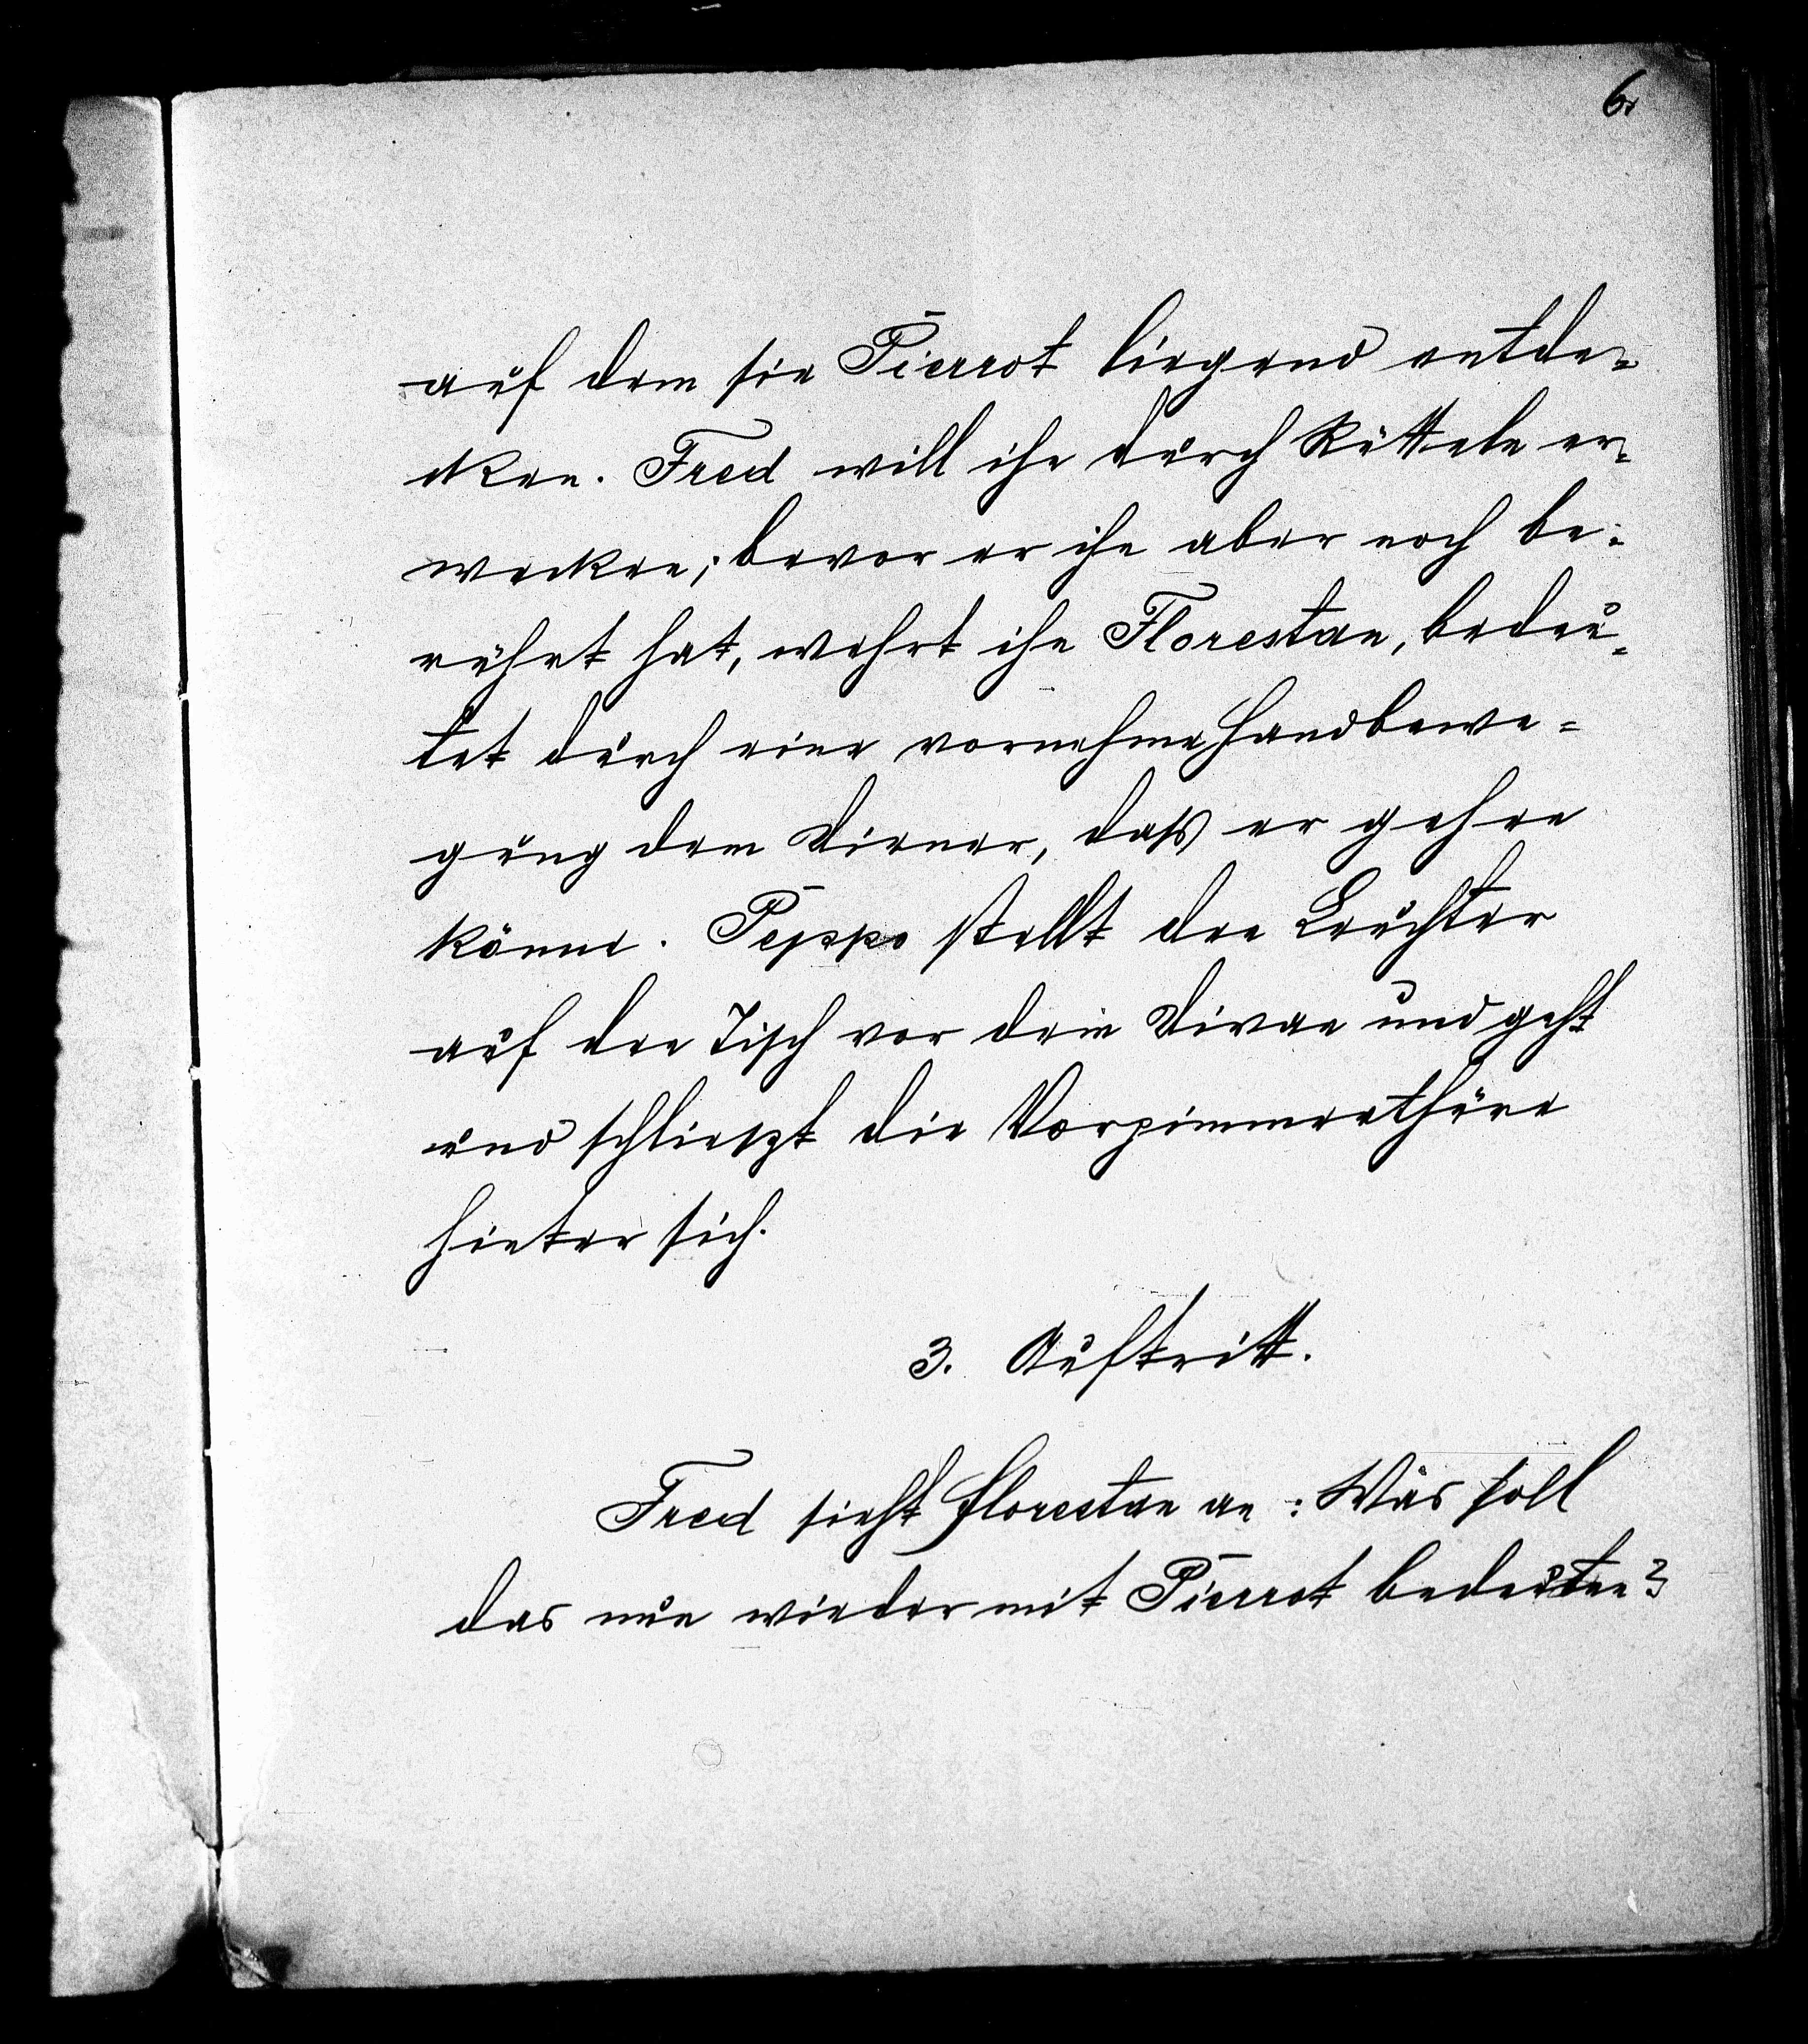 6.
auf dem sie Pierrot liegend entde-
cken. Fred will ihn durch Rütteln er-
wecken; bevor er ihn aber noch be-
rührt hat, wehrt ihn Florestan, bedeu-
tet durch eine vornehme Handbewe-
gung dem Diener, dass er gehen
könne. Peppo stellt den Leuchter
auf den Tisch vor dem Divan und geht
und schlieszt die Vorzimmerthüre
hinter sich.
3. Auftritt.
Fred sieht Florestan an: Was soll
das nun wieder mit Pierrot bedeuten?